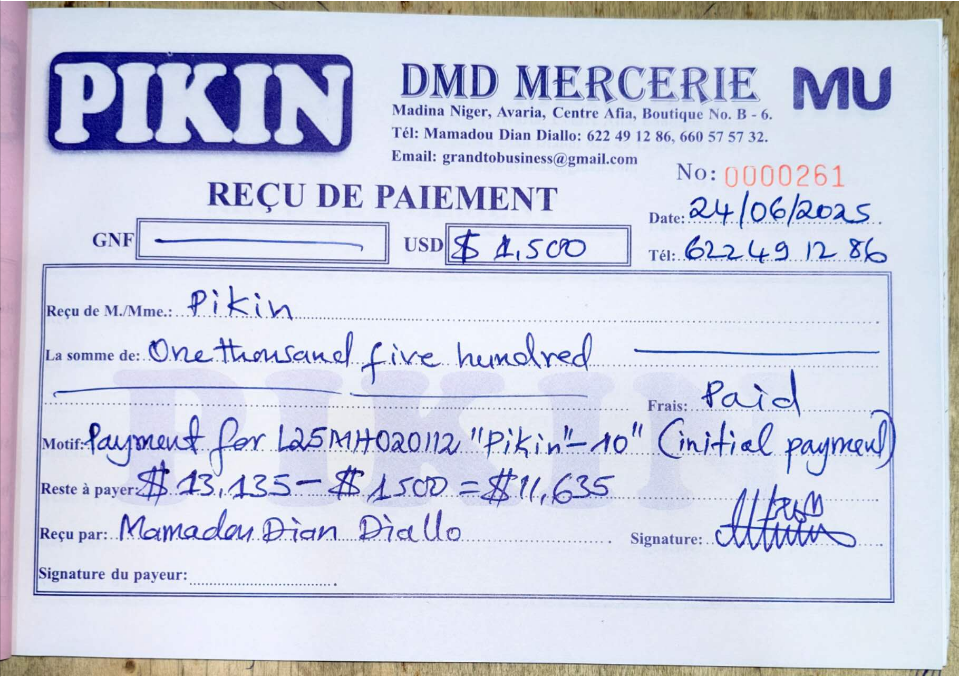 PIKIN
DMD MERCERIE
MU
Madina Niger, Avaria, Centre Afia, Boutique No. B - 6.
Tél: Mamadou Dian Diallo: 622 49 12 86, 660 57 57 32.
Email: grandtobusiness@gmail.com
No: 0000261
REÇU DE PAIEMENT
Date: 24/06/2025
GNF
USD $ 1,500
Tél: 622 49 12 86
Reçu de M./Mme.: Pikin
La somme de: One thousand five hundred
Frais: Paid
Motif: Payment for L25MH020112 "Pikin"-10" (initial payment)
Reste à payer: $ 13,135 - $ 1500 = $11,635
Reçu par: Mamadou Dian Diallo
Signature:
Signature du payeur:
PIKIN